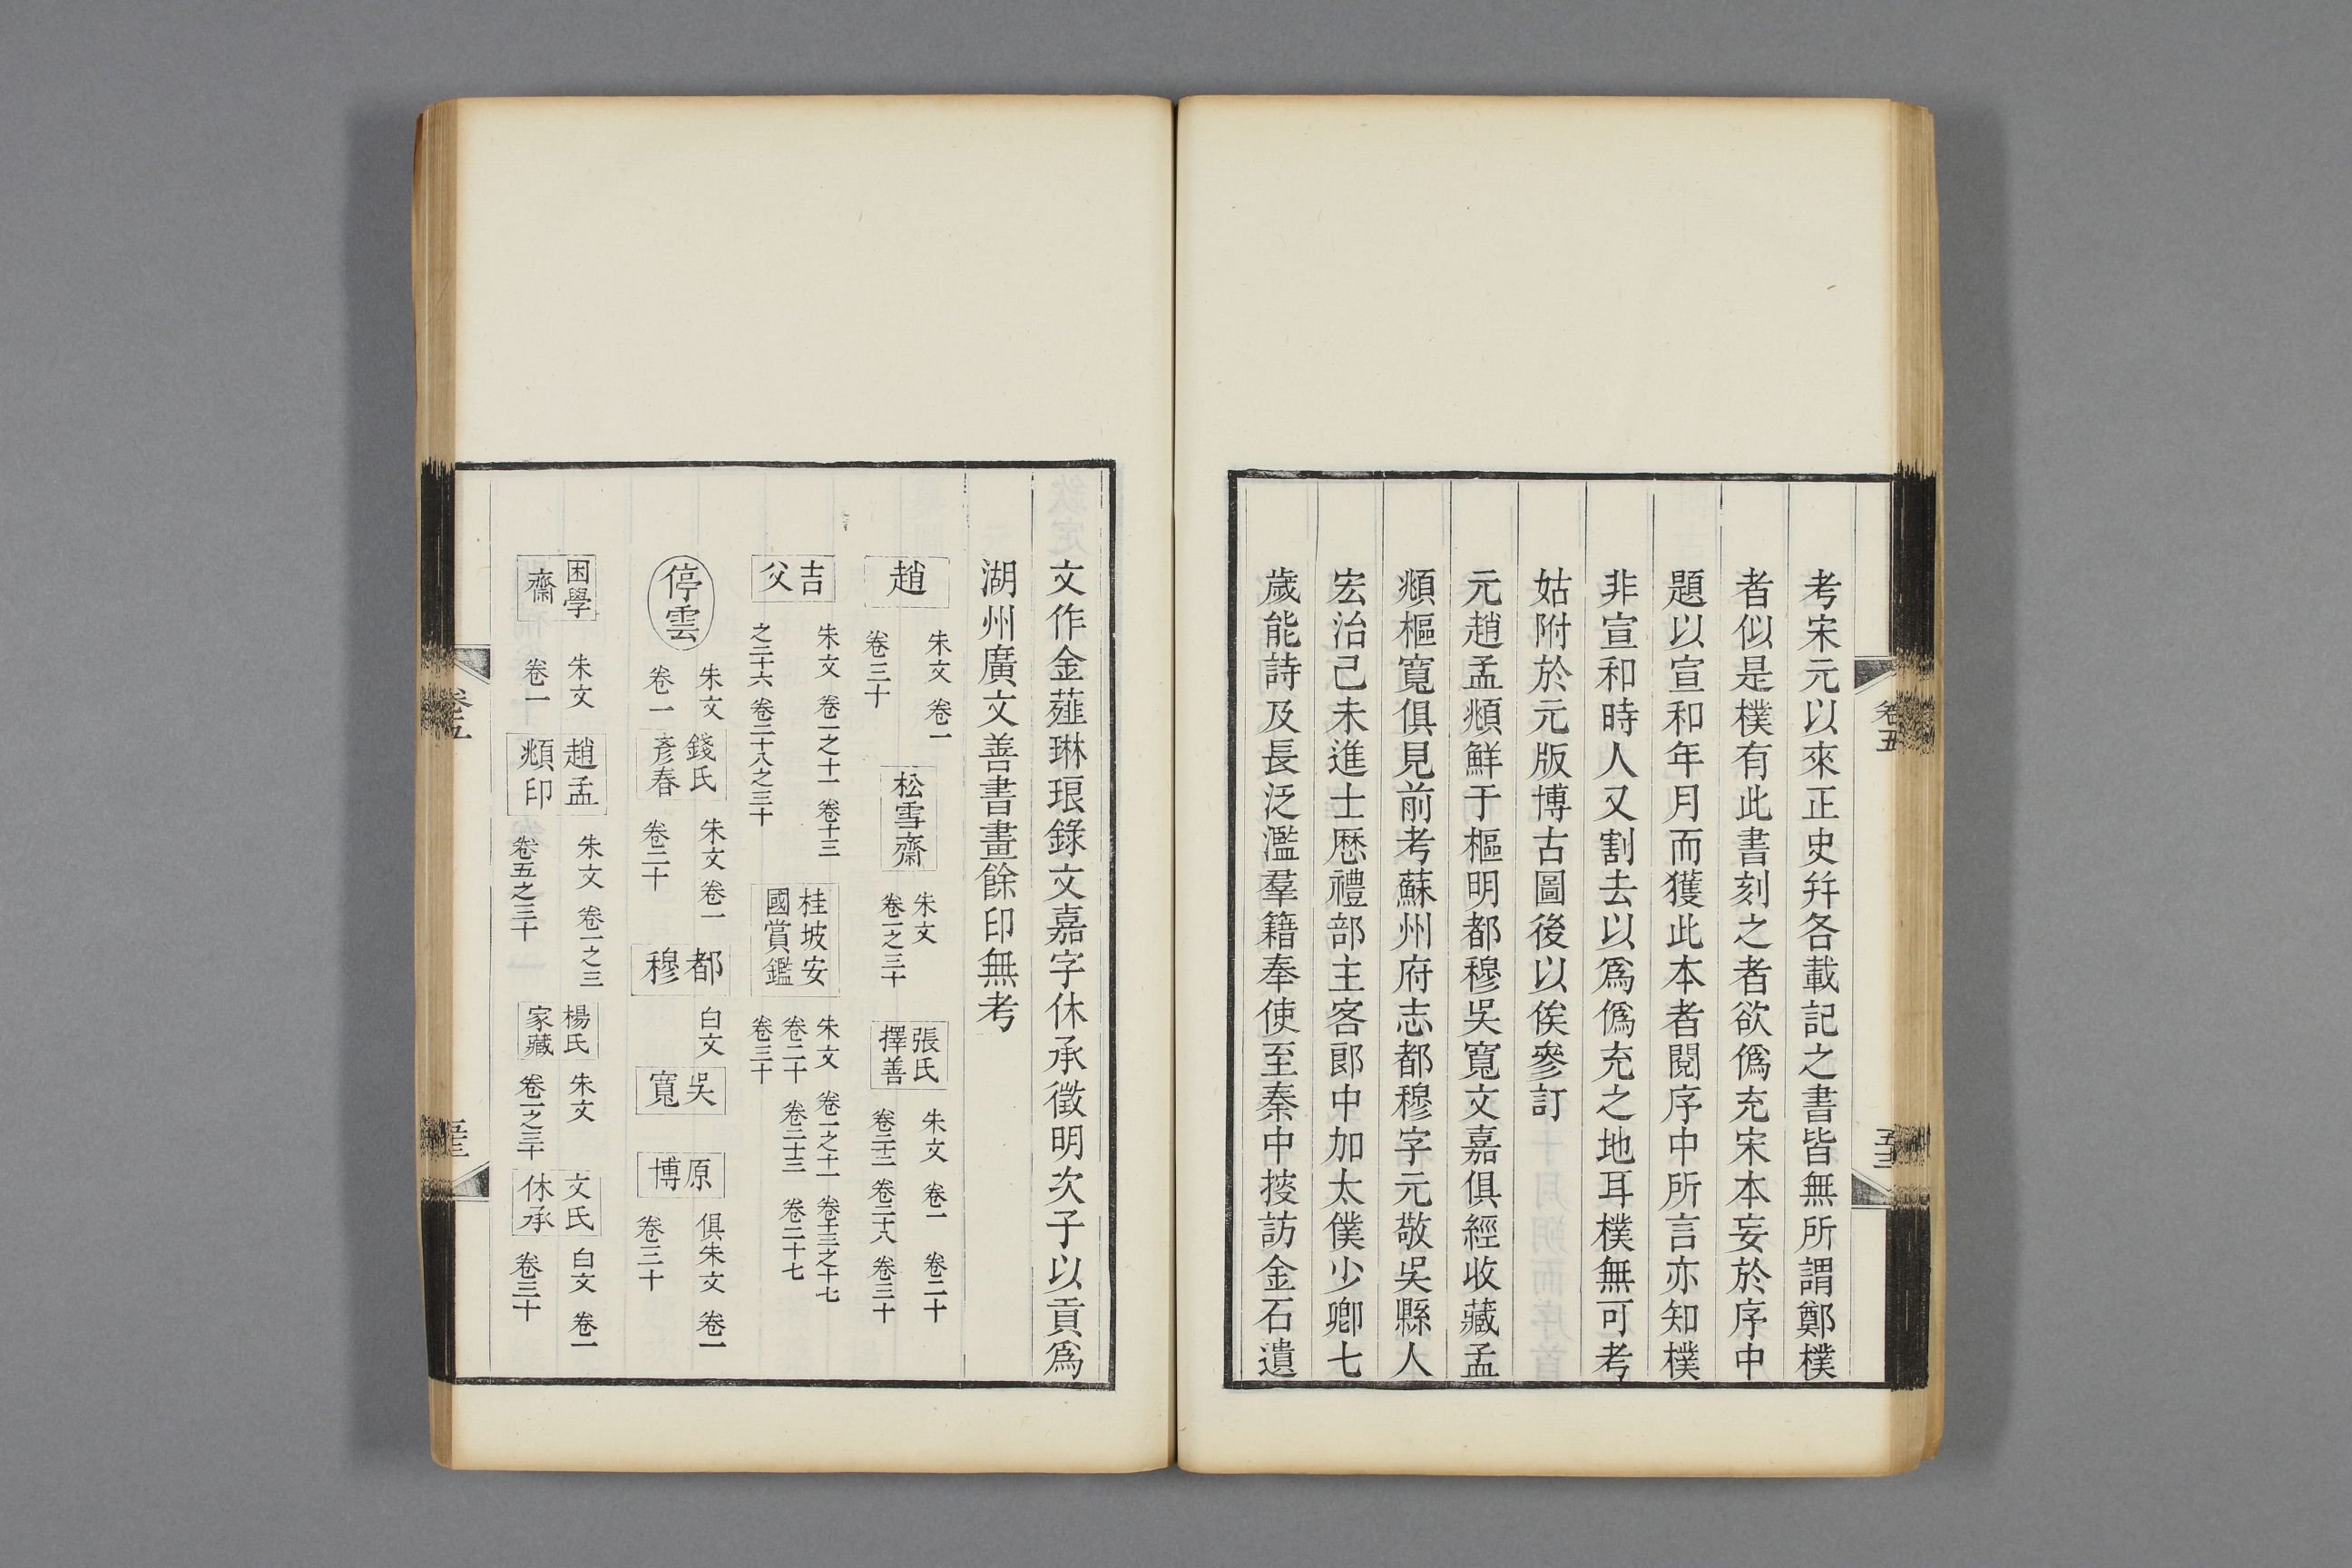 考宋元以來正史幷各載記之書皆無所謂鄭樸
者似是樸有此書刻之者欲僞充宋本妄於序中
題以宣和年月而獲此本者閱序中所言亦知樸
非宣和時人又割去以爲僞充之地耳樸無可考
姑附於元版博古圖後以俟參訂
元趙孟頫鮮于樞明都穆吳寬文嘉俱經收藏孟
頫樞寬俱見前考蘇州府志都穆字元敬吳縣人
宏治己未進士歷禮部主客郎中加太僕少卿七
歲能詩及長泛濫羣籍奉使至秦中搜訪金石遺
文作金薤琳琅錄文嘉字休承徵明次子以貢爲
湖州廣文善書畫餘印無考
趙 朱文 卷一 卷三十
松雪齋 朱文 卷一之三十
張氏擇善 朱文 卷一 卷二十 卷二十二 卷二十八 卷三十
吉父 朱文 卷一之十一 卷十三之二十六 卷二十八之三十
桂坡安國賞鑑 朱文 卷一之十一 卷十三之十七 卷二十 卷二十三 卷二十七 卷三十
停雲 朱文 卷一
錢氏彥春 朱文 卷一 卷二十
都穆 白文
吳寬
原博 俱朱文 卷一 卷三十
困學齋 朱文 卷一
趙孟頫印 朱文 卷一之三 卷五之三十
楊氏家藏 朱文 卷一之三十
文氏休承 白文 卷一 卷三十
卷五
卷五